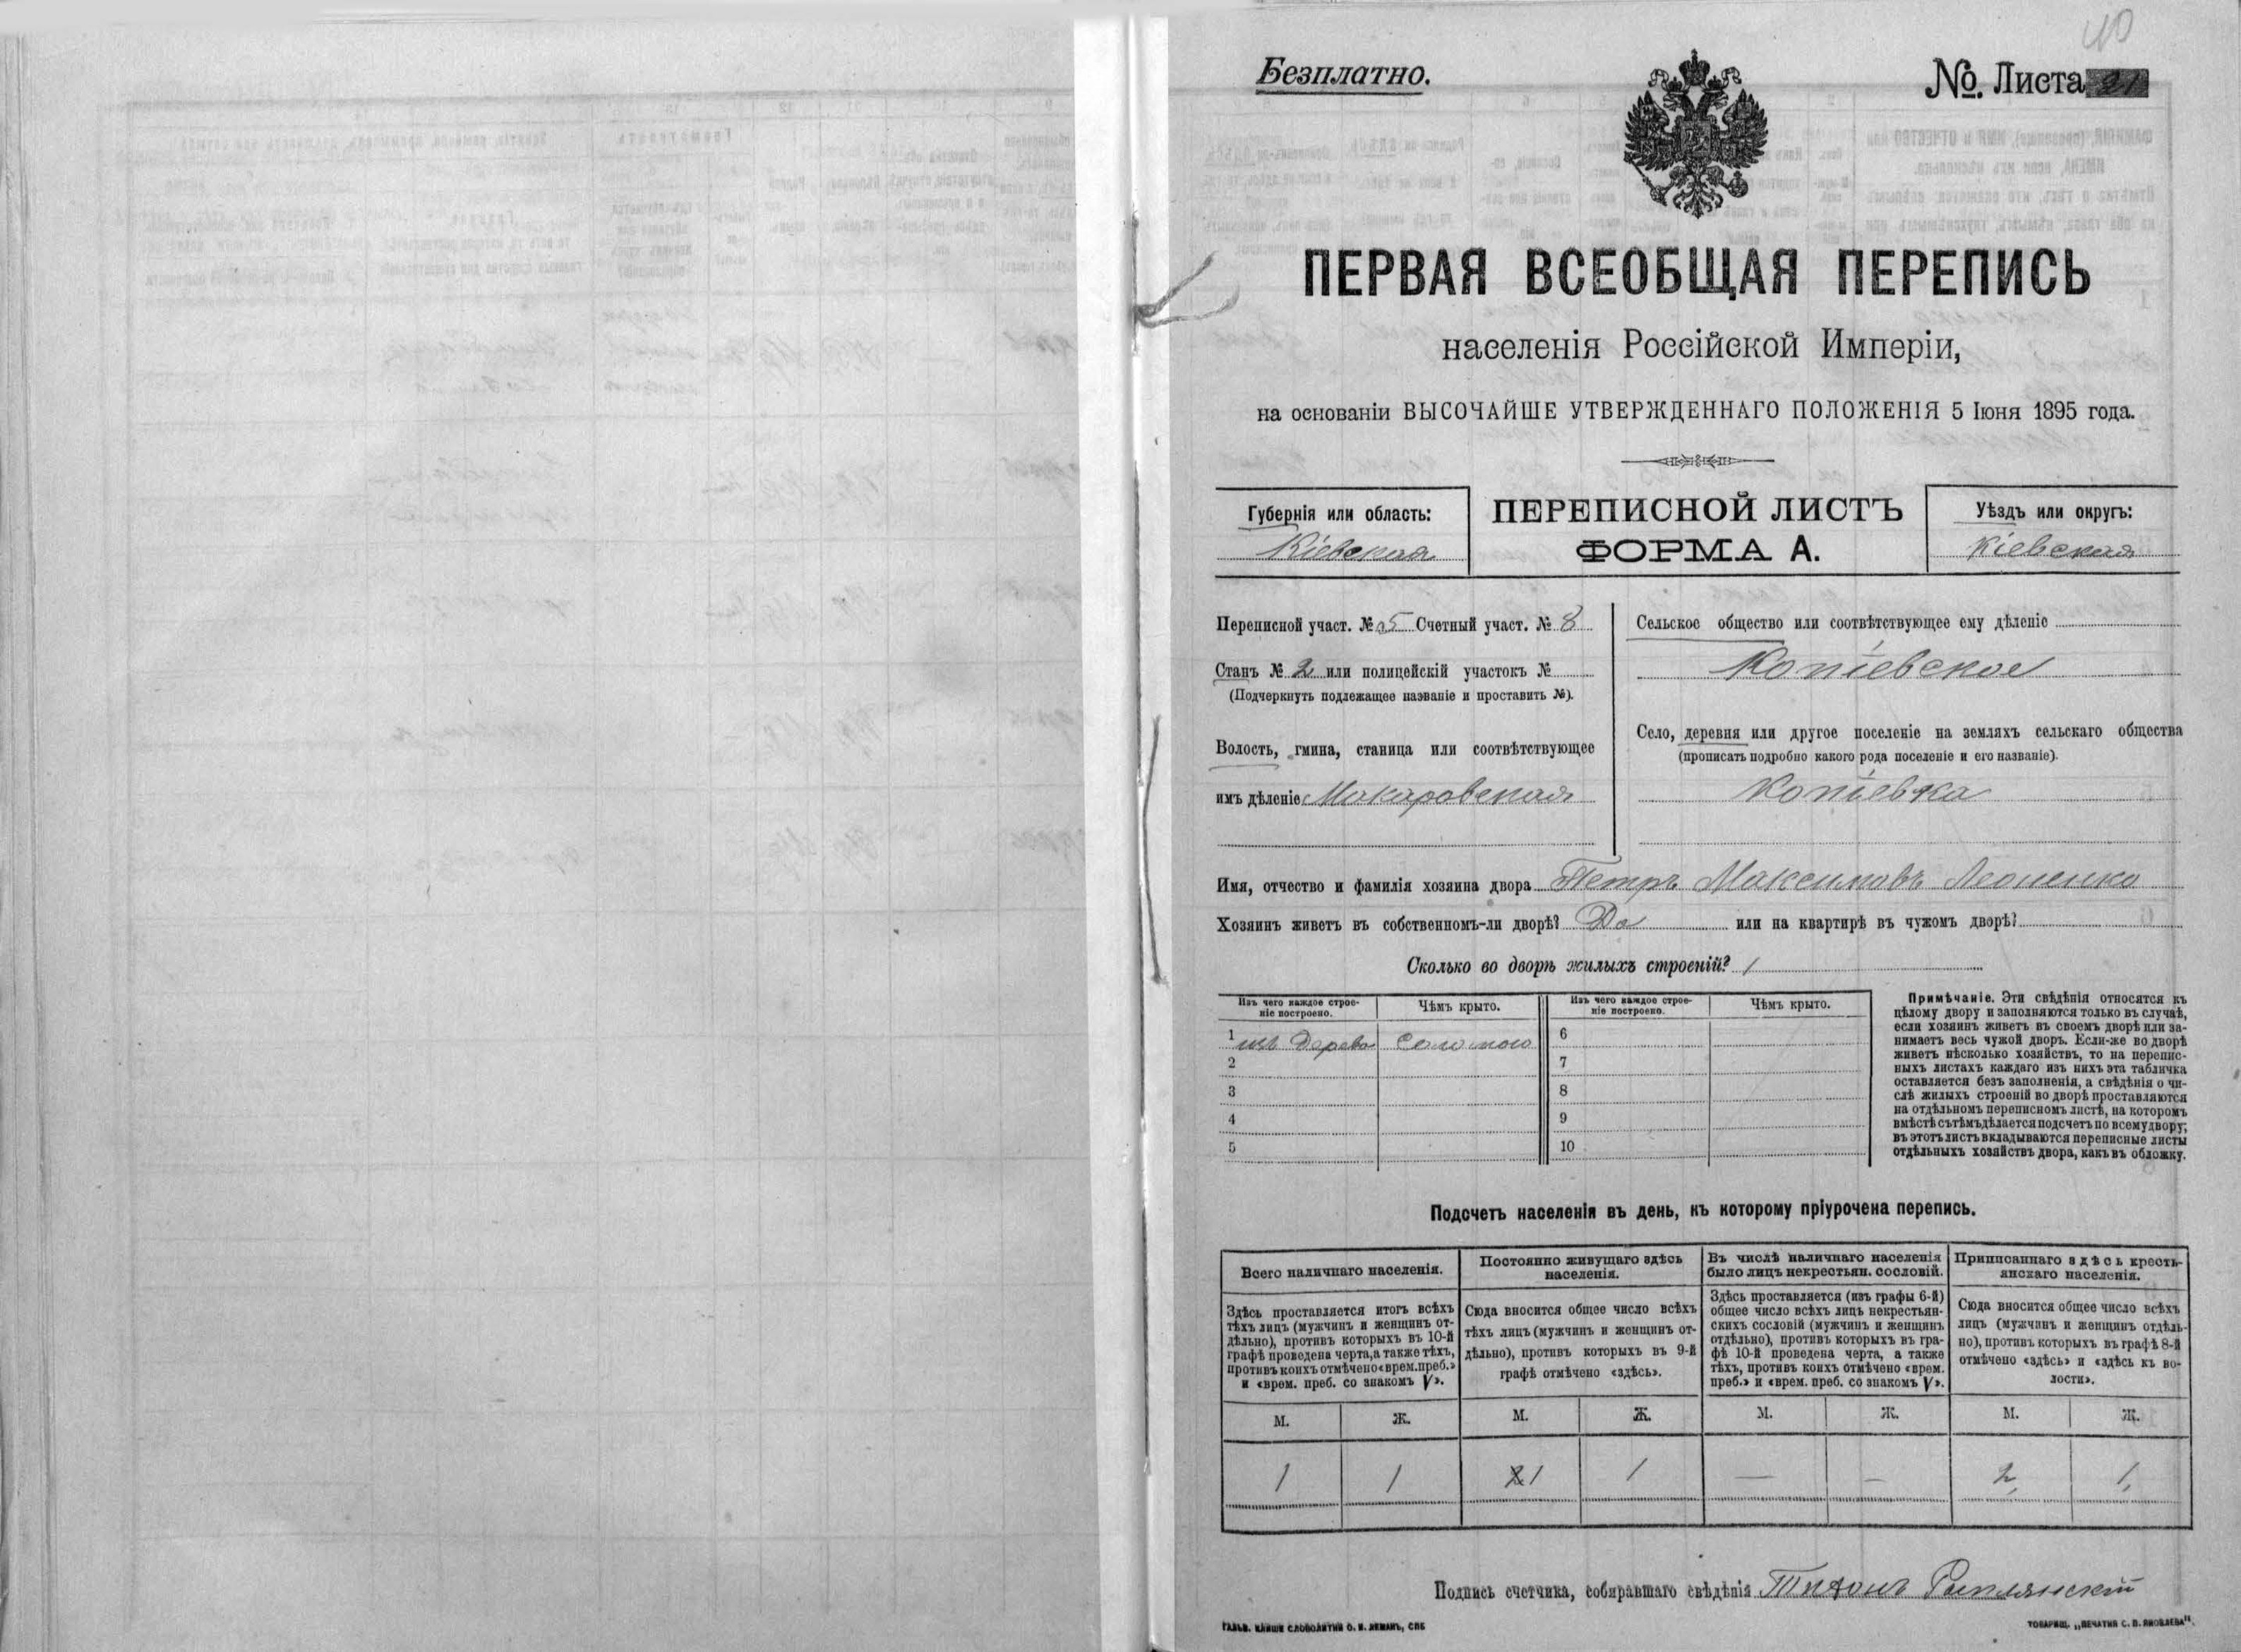 40
Безплатно.
№. Листа 21
ПЕРВАЯ ВСЕОБЩАЯ ПЕРЕПИСЬ
населенія Россійской Имперіи,
на основаніи ВЫСОЧАЙШЕ УТВЕРЖДЕННАГО ПОЛОЖЕНІЯ 5 Іюня 1895 года.
Губернія или область:
Кіевская
ПЕРЕПИСНОЙ ЛИСТЪ
ФОРМА А.
Уѣздъ или округъ:
Кіевская
Переписной участ. № 5 Счетный участ. № 8
Станъ № 2 или полицейскій участокъ №
(Подчеркнуть подлежащее названіе и проставить №).
Волость, гмина, станица или соотвѣтствующее
имъ дѣленіе Макаровская
Сельское общество или соотвѣтствующее ему дѣленіе
Копіевское
Село, деревня или другое поселеніе на земляхъ сельскаго общества
(прописать подробно какого рода поселеніе и его названіе).
Копіевка
Имя, отчество и фамилія хозяина двора Петръ Максимовъ Леоненко
Хозяинъ живетъ въ собственномъ-ли дворѣ? Да или на квартирѣ въ чужомъ дворѣ?
Сколько во дворѣ жилыхъ строеній? 1
Изъ чего каждое строе-
ніе построено.
Чѣмъ крыто.
Изъ чего каждое строе-
ніе построено.
Чѣмъ крыто.
1 изъ Дерева Соломою 6
2 7
3 8
4 9
5 10
Примѣчаніе. Эти свѣдѣнія относятся къ
цѣлому двору и заполняются только въ случаѣ,
если хозяинъ живетъ въ своемъ дворѣ или за-
нимаетъ весь чужой дворъ. Если-же во дворѣ
живетъ нѣсколько хозяйствъ, то на перепис-
ныхъ листахъ каждаго изъ нихъ эта табличка
оставляется безъ заполненія, а свѣдѣнія о чи-
слѣ жилыхъ строеній во дворѣ проставляются
на отдѣльномъ переписномъ листѣ, на которомъ
вмѣстѣ съ тѣмъ дѣлается подсчетъ по всему двору;
въ этотъ листъ вкладываются переписные листы
отдѣльныхъ хозяйствъ двора, какъ въ обложку.
Подсчетъ населенія въ день, къ которому пріурочена перепись.
Всего наличнаго населенія.
Здѣсь проставляется итогъ всѣхъ
тѣхъ лицъ (мужчинъ и женщинъ от-
дѣльно), противъ которыхъ въ 10-й
графѣ проведена черта, а также тѣхъ,
противъ коихъ отмѣчено «врем. преб.»
и «врем. преб. со знакомъ V».
Постоянно живущаго здѣсь
населенія.
Сюда вносится общее число всѣхъ
тѣхъ лицъ (мужчинъ и женщинъ от-
дѣльно), противъ которыхъ въ 9-й
графѣ отмѣчено «здѣсь».
Въ числѣ наличнаго населенія
было лицъ некрестьян. сословій.
Здѣсь проставляется (изъ графы 6-й)
общее число всѣхъ лицъ некрестьян-
скихъ сословій (мужчинъ и женщинъ
отдѣльно), противъ которыхъ въ гра-
фѣ 10-й проведена черта, а также
тѣхъ, противъ коихъ отмѣчено «врем.
преб.» и «врем. преб. со знакомъ V».
Приписаннаго здѣсь кресть-
янскаго населенія.
Сюда вносится общее число всѣхъ
лицъ (мужчинъ и женщинъ отдѣль-
но), противъ которыхъ въ графѣ 8-й
отмѣчено «здѣсь» и «здѣсь къ во-
лости».
М. Ж. М. Ж. М. Ж. М. Ж.
1 1 2 1 1 — — 2 1
Подпись счетчика, собиравшаго свѣдѣнія Тихонъ
ГАЛЬВ. КЛИШЕ СЛОВОЛИТНИ О. И. ЛЕМАНЪ, СПБ
ТОВАРИЩ. „ПЕЧАТНЯ С. П. ЯКОВЛЕВА".